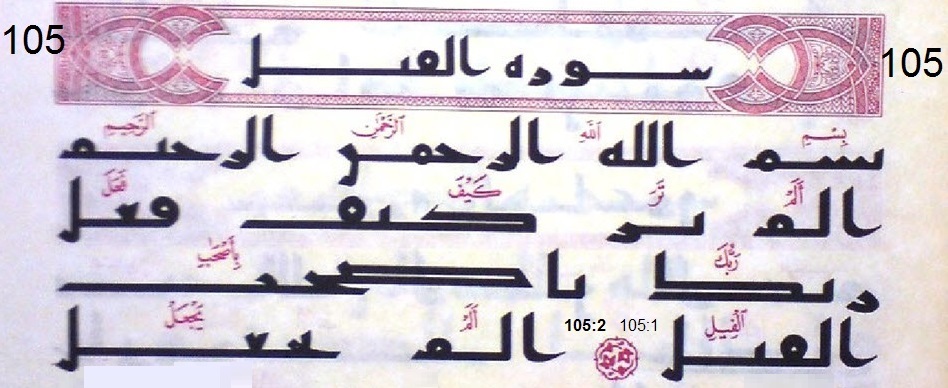 105 سوره الفيل 105
بِسْمِ اللَّهِ الرَّحْمَٰنِ الرَّحِيمِ
بسم الله الرحمن الرحيم
أَلَمْ تَرَ كَيْفَ فَعَلَ
الم تر كيف فعل
رَبُّكَ بِأَصْحَٰبِ
ربك باصحب
ٱلْفِيلِ أَلَمْ يَجْعَلْ
الفيل 105:1 105:2 الم يجعل